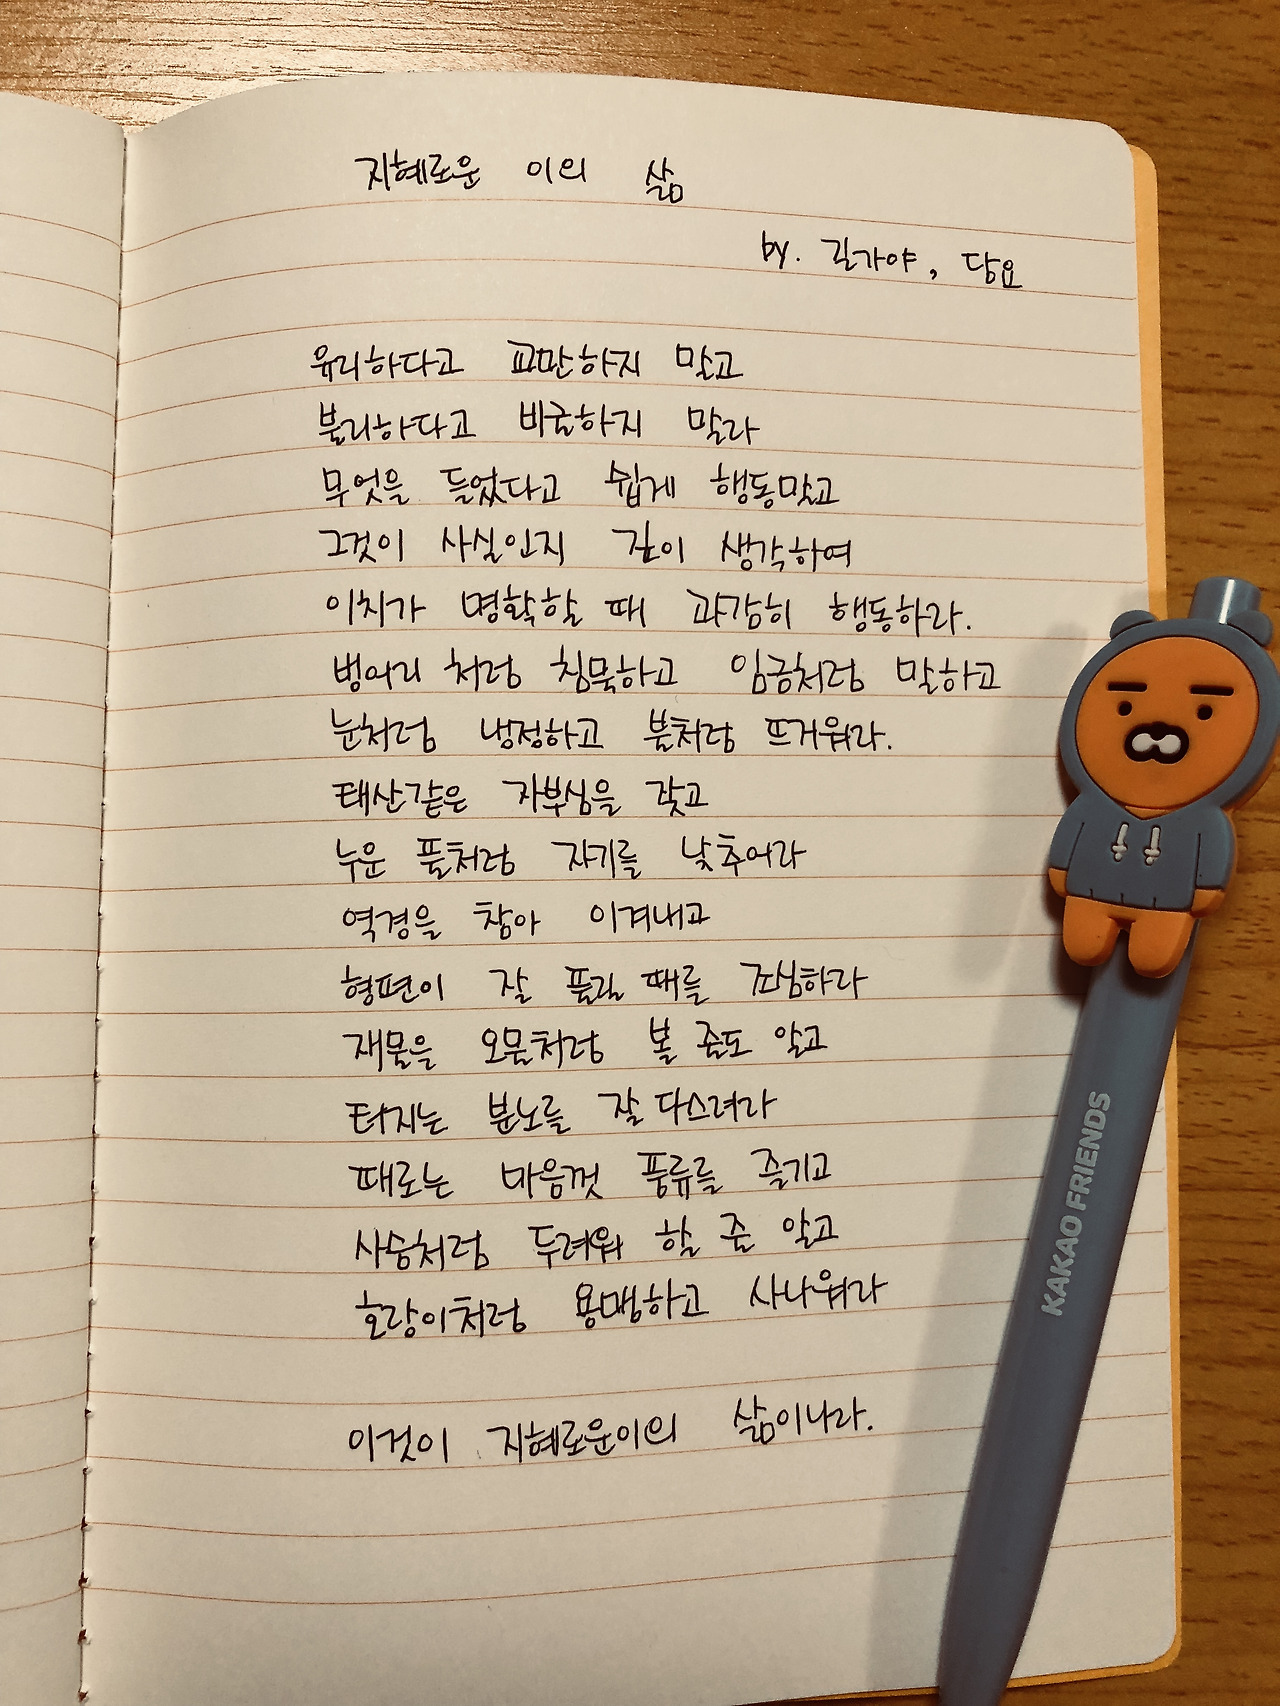 지혜로운 이의 삶
by. 길가야, 당요
유리하다고 교만하지 말고
불리하다고 비굴하지 말라
무엇을 들었다고 쉽게 행동말고
그것이 사실인지 깊이 생각하여
이치가 명확할 때 과감히 행동하라.
벙어리 처럼 침묵하고 임금처럼 말하고
눈처럼 냉정하고 불처럼 뜨거워라.
태산같은 자부심을 갖고
누운 풀처럼 자기를 낮추어라
역경을 참아 이겨내고
형편이 잘 풀릴 때를 조심하라
재물을 오물처럼 볼 줄도 알고
터지는 분노를 잘 다스려라
때로는 마음껏 풍류를 즐기고
사슴처럼 두려워 할 줄 알고
호랑이처럼 용맹하고 사나워라
이것이 지혜로운이의 삶이니라.
KAKAO FRIENDS